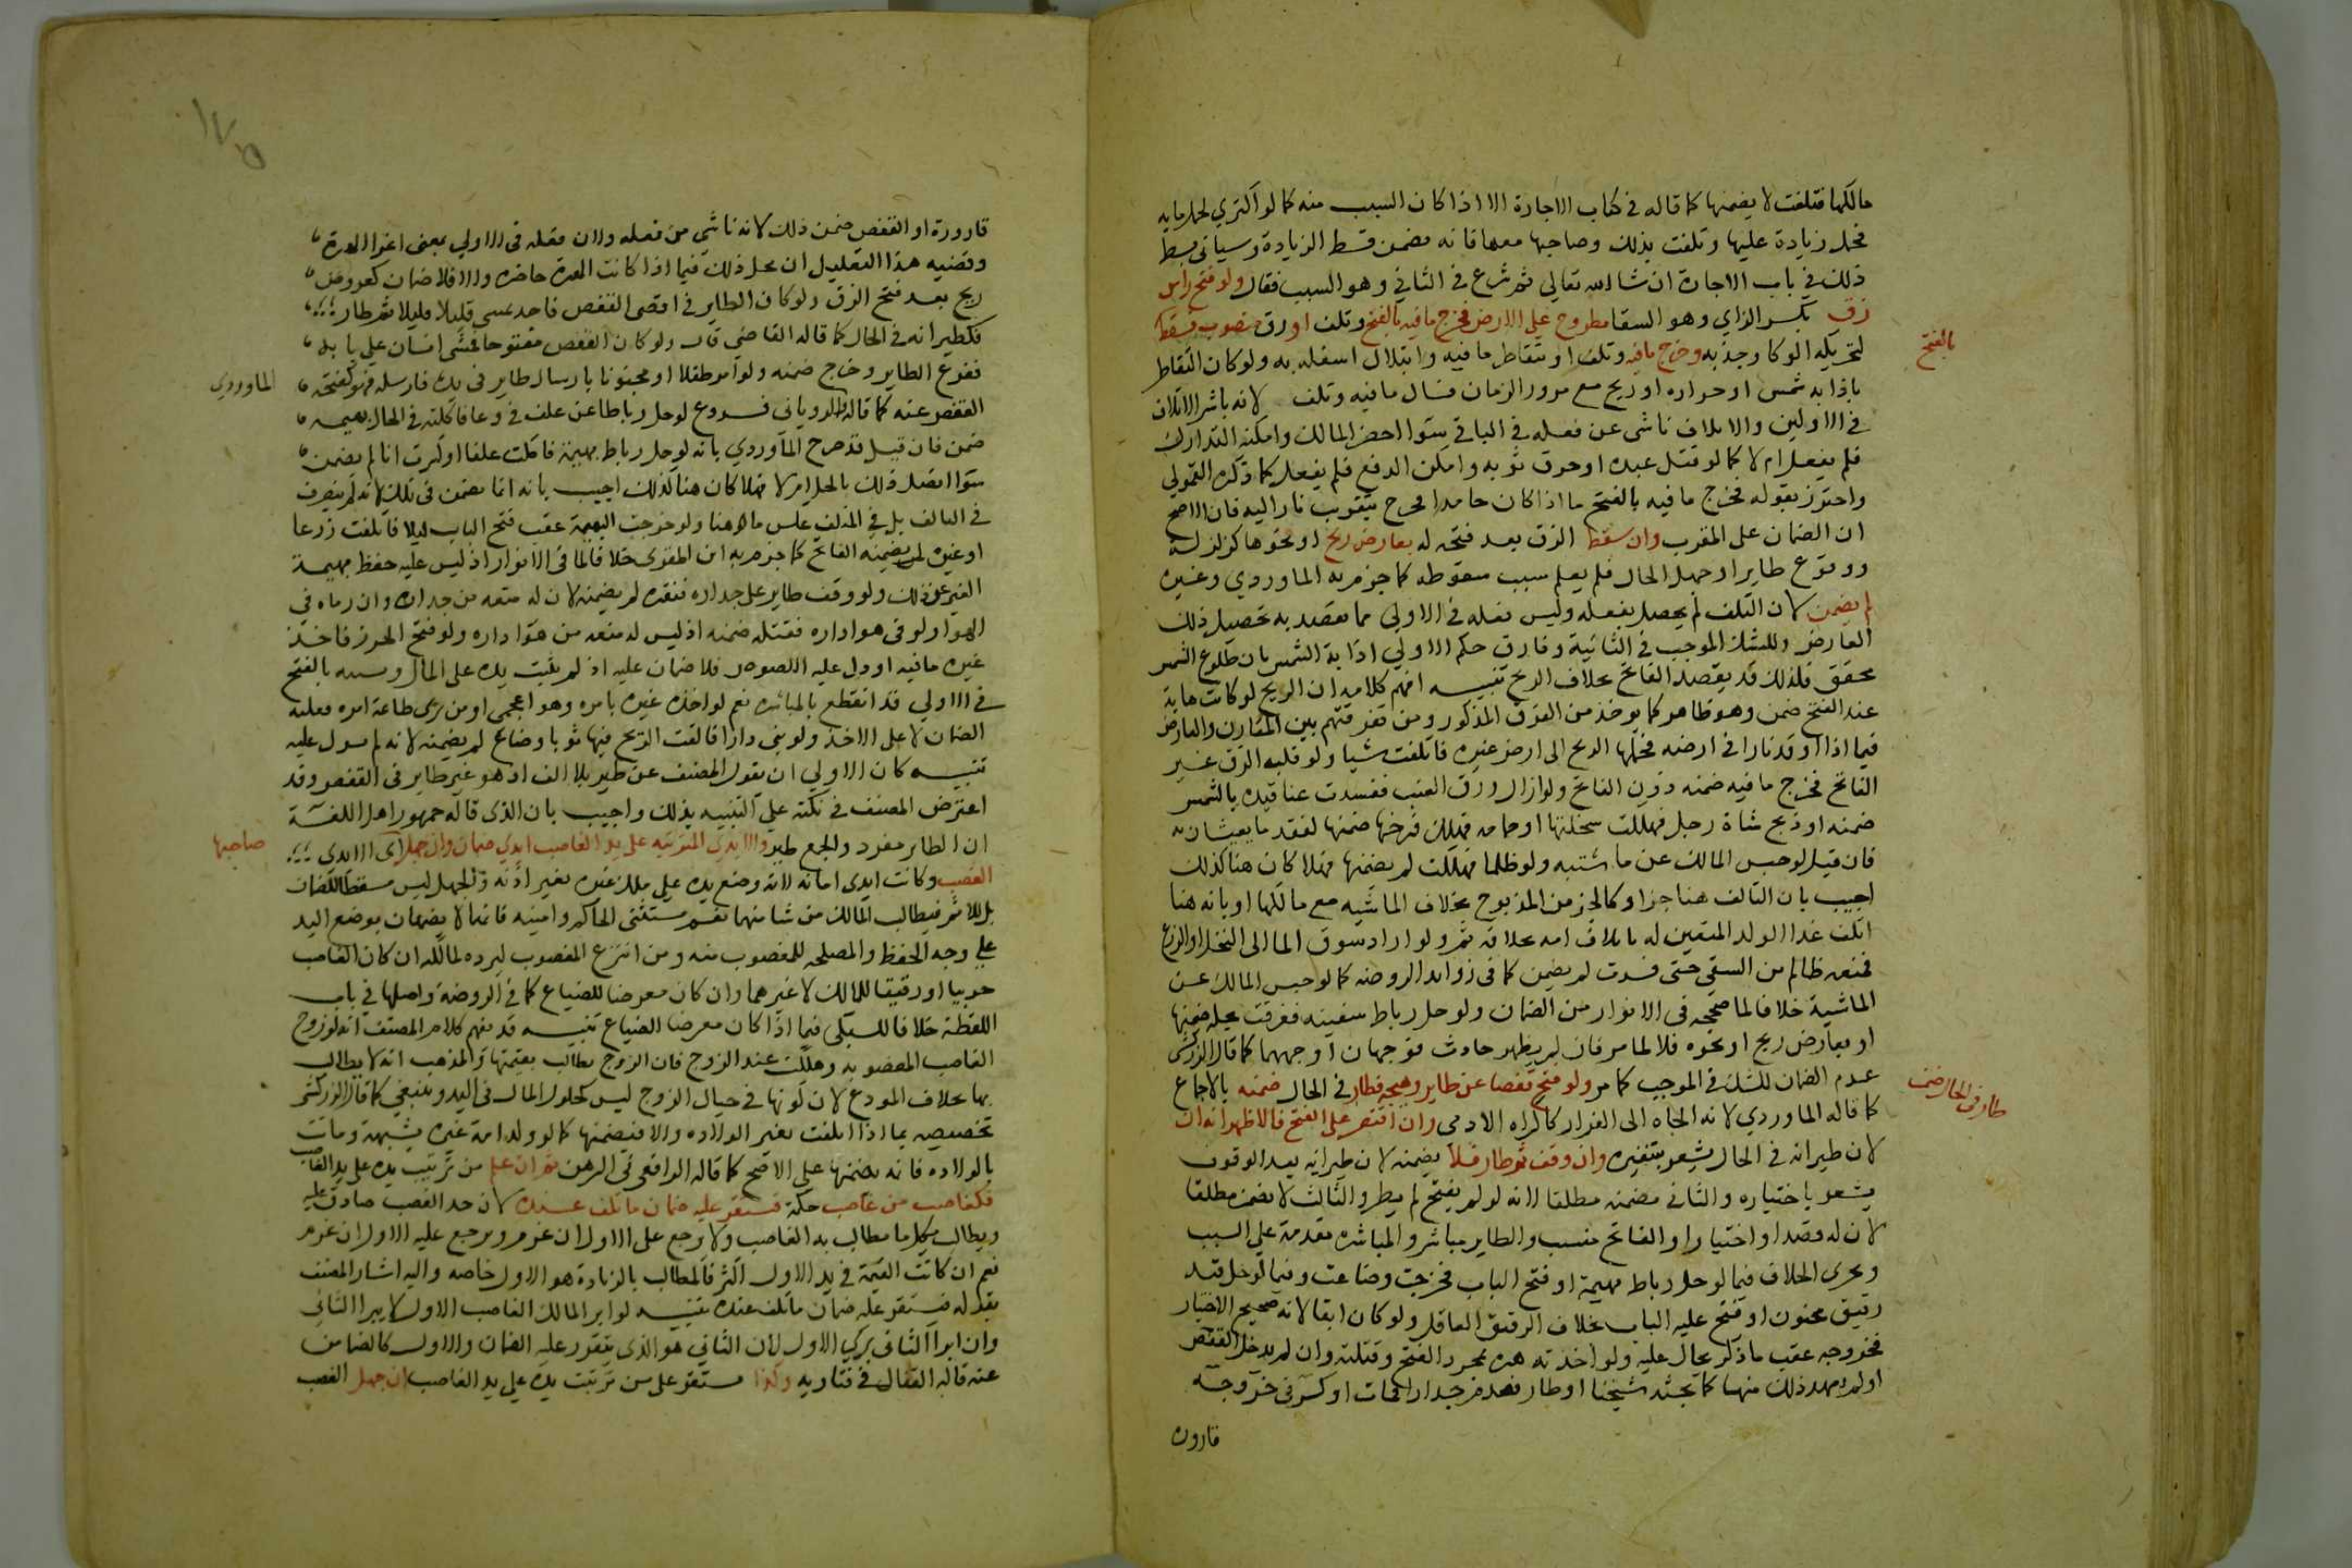 مالكها فتلفت لا يضمنها كما قاله في كتاب الاجارة الا اذا كان السبب منه كما لو اكتري لحمل ماية
فحمل زيادة عليها وتلفت بذلك وصاحبها معها فانه يضمن قسط الزيادة وسياتي بسط
ذلك في باب الاجارة ان شا الله تعالي ثم شرع في الثاني وهو السبب فقال ولو فتح راس
زق بكسر الزاي وهو السقا مطروح على الارض فخرج ما فيه بالفتح وتلف او زق منصوب فسقط
بالفتح
لتحريكه الوكا وجذبه وخرج ما فيه وتلف او بتقاطر ما فيه وابتلال اسفله به ولو كان التقاطر
باذابة شمس او حراره او ريح مع مرور الزمان فسال ما فيه وتلف لانه باشر الاتلاف
في الاولين والاتلاف ناشى عن فعله في الباقي سوا احضر المالك وامكنه التدارك
فلم يفعل ام لا كما لو قتل عبده او حرق ثوبه وامكن الدفع فلم يفعل كما ذكره القمولي
واحترز بقوله فخرج ما فيه بالفتح ما اذا كان جامدا فخرج بتقريب نارا ليه فان الاصح
ان الضمان على المقرب وان سقط الزق بعد فتحه له بعارض ريح او نحوها كزلزلة
ووقوع طاير او جهل الحال فلم يعلم سبب سقوطه كما جزم به الماوردي وغيره
لم يضمن لان التلف لم يحصل بفعله وليس فعله في الاولي مما يقصد به تحصيل ذلك
العارض وللشك الموجب في الثانية وفارق حكم الاولي اذابة الشمس بان طلوع الشمس
محقق فلذلك قد يقصد الفاتح بخلاف الريح تنبيه افهم كلامه ان الريح لو كانت هابة
عند الفتح ضمن وهو ظاهر كما يوخذ من الفرق المذكور ومن تفرقتهم بين المقارن والعارض
فيما اذا اوقد نارا في ارضه فحملها الريح الى ارض غيره فاتلفت شيا ولو قلبه الزق غير
الفاتح فخرج ما فيه ضمنه دون الفاتح ولو ازال ورق العنب ففسدت عناقيده بالشمس
ضمنه او ذبح شاة رجل فهلكت سخلتها او حمامه فهلك فرخها ضمنها لفقد ما يعيشان به
فان قيل لو حبس المالك عن ماشيته ولو ظلما فهلكت لم يضمنها فهلا كان هنا كذلك
اجيب بان التالف هنا جزا وكالجز من المذبوح بخلاف الماشيه مع مالكها او بانه هنا
اتلف غدا الولد المتعين له باتلاف امه بخلافه ثم ولو اراد سوق الما الى النخل او الزرع
فمنعه ظالم من السقي حتى فسدت لم يضمن كما في زوايد الروضه كما لو حبس المالك عن
الماشية خلافا لما صححه في الانوار من الضمان ولو حل رباط سفينه فغرقت بحله ضمنها
او بعارض ريح او نحوه فلا لما مر فان لم يظهر حادث فوجهان اوجههما كما قال الزركشى
عدم الضمان للشك في الموجب كما مر ولو فتح قفصا عن طاير وهيجه فطار في الحال ضمنه بالاجماع
طار في الحال ضمن
كما قاله الماوردي لانه الجاه الى الفرار كاكراه الادمى وان اقتصر على الفتح فالاظهر انه ان
لان طيرانه في الحال يشعر بتنفيره وان وقف ثم طار فلا يضمنه لان طيرانه بعد الوقوف
يشعر باختياره والثاني يضمنه مطلقا لانه لو لم يفتح لم يطر والثالث لا يضمن مطلقا
لان له قصدا واختيارا والفاتح متسبب والطاير مباشر والمباشره مقدمة علي السبب
ويجري الخلاف فيما لو حل رباط بهيمة او فتح الباب فخرجت وضاعت وفيما لو حل قيد
رقيق مجنون او فتح عليه الباب بخلاف الرقيق العاقل ولو كان ابقا لانه صحيح الاختيار
فخروجه عقب ما ذكر يحال عليه ولو اخذته هره بمجرد الفتح وقتلته وان لم يدخل القفص
او لم يعهد ذلك منها كما بحثه شيخنا او طار فصدم جدارا فمات او كسر في خروجه
قاروره
قارورة او القفص ضمن ذلك لانه ناشي من فعله ولان فعله في الاولي بمعنى اغرا الهرة
وقضيه هذا التعليل ان محل ذلك فيما اذا كانت الهرة حاضره والا فلا ضمان كعروض
ريح بعد فتح الزق ولو كان الطاير في اقصى القفص فاخذ يمشي قليلا قليلا ثم طار
فكطيرانه في الحال كما قاله القاضي قال ولو كان القفص مفتوحا فمشى انسان علي بابه
ففزع الطاير وخرج ضمنه ولو امر طفلا او مجنونا بارسال طاير في يده فارسله فهو كفتحه
الماوردي
القفص عنه كما قاله والروياني فروع لو حل رباطا عن علف في وعا فاكلته في الحال بهيمه
ضمن فان قيل قد صرح الماوردي بانه لو حل رباط بهيمة فاكلت علفا او كسرت انا لم يضمن
سوا اتصل ذلك بالحل ام لا فهلا كان هنا كذلك اجيب بانه انما يضمن في تلك لانه لم يتصرف
في التالف بل في المتلف عكس ما هو هنا ولو خرجت البهيمة عقب فتح الباب ليلا فاتلفت زرعا
او غيره لم يضمنه الفاتح كما جزم به ابن المقري خلافا لما في الانوار اذ ليس عليه حفظ بهيمة
الغير عن ذلك ولو وقف طاير على جداره فنفره لم يضمنه لان له منعه من جداره وان رماه في
الهوا ولو في هوا داره فقتله ضمنه اذ ليس له منعه من هوا داره ولو فتح الحرز فاخذ
غيره ما فيه او دل عليه اللصوص فلا ضمان عليه اذ لم يثبت يده على المال وسببه بالفتح
في الاولي قد انقطع بالمباشره نعم لو اخذه غيره بامره وهو اعجمي او من يرى طاعة امره فعليه
الضمان لا على الاخذ ولو بني دارا فالقت الريح فيها ثوبا وضاع لم يضمنه لانه لم يسول عليه
تنبيه كان الاولي ان يقول المصنف عن طير بلا الف اذ هو غير طاير في القفص وقد
اعترض المصنف في نكته علي التنبيه بذلك واجيب بان الذى قاله جمهور اهل اللغة
ان الطاير مفرد والجمع طير والايدى المترتبه على يد الغاصب ايدي ضمان وان جهل اى الايدي
صاحبها
الغصب وكانت ايدى امانه لانه وضع يده علي ملك غيره بغير اذنه والجهل ليس مسقطا للضمان
بل للاثم فيطالب المالك من شا منهما نعم يستثنى الحاكم وامينه فانهما لا يضمنان بوضع اليد
علي وجه الحفظ والمصلحه للمغصوب منه ومن انتزع المغصوب ليرده لمالكه ان كان الغاصب
حربيا او رقيقا للمالك لا غيرهما وان كان معرضا للضياع كما في الروضة واصلها في باب
اللقطة خلافا للسبكى فيما اذا كان معرضا للضياع تنبيه قد يفهم كلام المصنف انه لو زوج
الغاصب المغصوبه وهلكت عند الزوج فان الزوج يطالب بقيمتها والمذهب انه لا يطالب
بها بخلاف المودع لان كونها في حبال الزوج ليس كحلول المال في اليد وينبغي كما قال الزركشى
تخصيصه بما اذا تلفت بغير الولاده والا فيضمنها كما لو ولد امة غيره بشبهة وماتت
بالولاده فانه يضمنها على الاصح كما قاله الرافعي في الرهن ثم ان علم من ترتبت يده علي يد الغاصب
فكغاصب من غاصب حكمه فيستقر عليه ضمان ما تلف عنده لان حد الغصب صادق عليه
ويطالب بكل ما يطالب به الغاصب ولا يرجع على الاول ان غرم ويرجع عليه الاول ان غرم
نعم ان كانت القيمة في يد الاول اكثر فالمطالب بالزيادة هو الاول خاصه واليه اشار المصنف
بقوله فيستقر عليه ضمان ما تلف عنده تنبيه لو ابرا المالك الغاصب الاول لا يبرا الثاني
وان ابرا الثاني بري الاول لان الثاني هو الذى يتقرر عليه الضمان والاول كالضامن
عنه قاله القفال في فتاويه وكذا يستقر على من ترتبت يده على يد الغاصب ان جهل الغصب
١٧٥